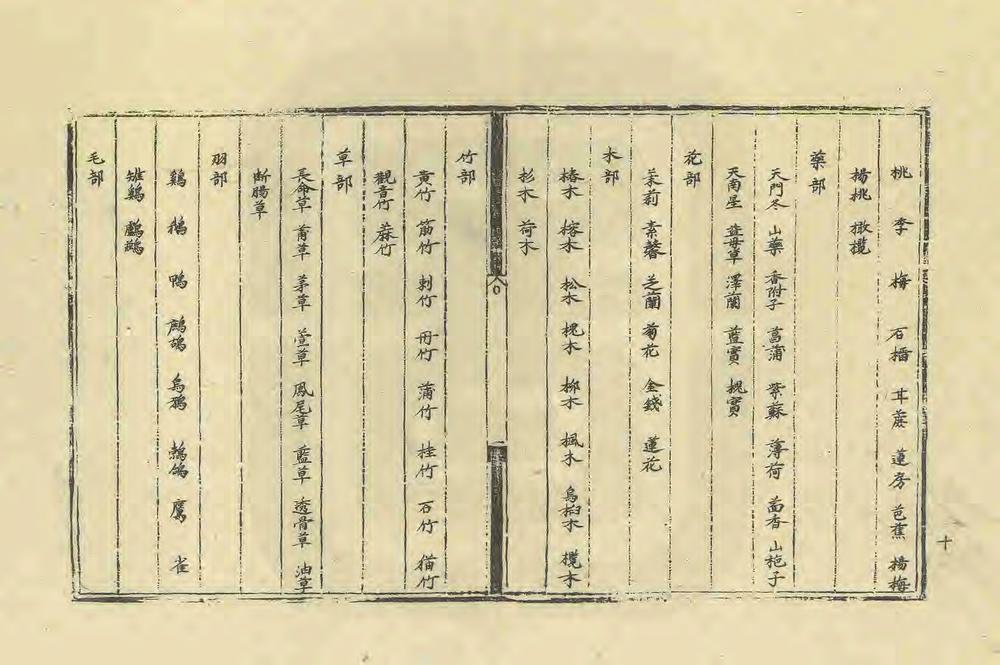 桃 李 梅 石榴 甘蔗 蓮房 芭蕉 楊梅
楊桃 橄欖
藥部
天門冬 山藥 香附子 菖蒲 紫蘇 薄荷 茴香 山梔子
天南星 益母草 澤蘭 藍實 槐實
花部
茉莉 素馨 芝蘭 菊花 金錢 蓮花
木部
椿木 榕木 松木 槐木 柳木 楓木 烏桕木 欖木
杉木 荷木
竹部
黃竹 筋竹 刺竹 丹竹 蒲竹 桂竹 石竹 猫竹
觀音竹 蔴竹
草部
長命草 莆草 茅草 萱草 鳳尾草 藍草 透骨草 油草
断腸草
羽部
鷄 鵝 鴨 鷓鴣 烏鴉 鵓鴿 鷹 雀
雉鷄
毛部
十